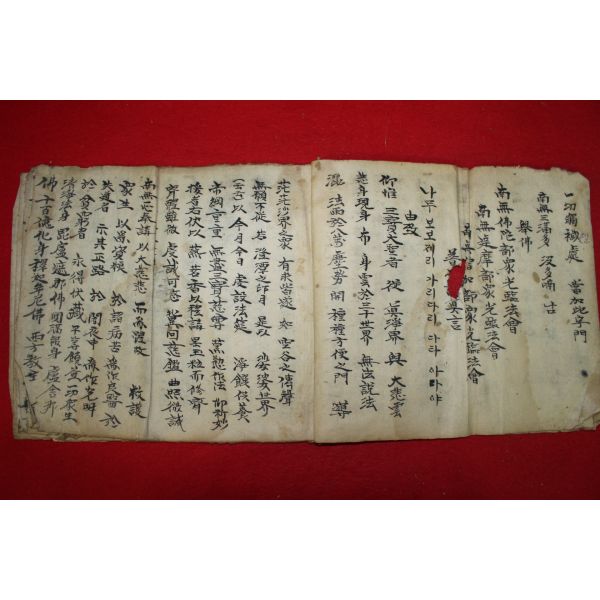 一切觸穢處 當加此字門
南無三滿多 沒多喃 
擧佛
南無佛陀部衆光臨法會
南無達摩部衆光臨法會
南無僧伽部衆光臨法會
普 眞言
나무 보보제리 가리다리 다타 아다야
由致
仰惟 三寶大聖者 從 眞淨界 興 大悲雲
非身現身 布 身雲於三千世界 無法說法
灑 法雨於 塵勞 開 種種方便之門 導
茫茫沙界之衆 有求皆遂 如 空谷之傳聲
無願不從 若 澄潭之印月 是以 娑婆世界
云云 以 今月今日 虔設法筵 淨饌供養
帝網重重 無盡三寶慈尊 薰懃作法 仰祈妙
援者右伏以 蓺 茗香以 禮請 呈玉粒而修齋
齋體雖微 虔誠可愍 冀回慈鑑 曲照微誠
南無一心奉請 以大慈悲 而爲體故 救護
衆生 以爲資糧 於諸病苦 爲作良醫 於
失道者 示其正路 於 闇夜中 爲作光明
於 貧窮者 永得伏藏 平等饒益 一切衆生
淸淨法身 毘盧遮那佛 圓滿報身 盧舍那
佛 千百億化身 釋迦牟尼佛 西方敎主